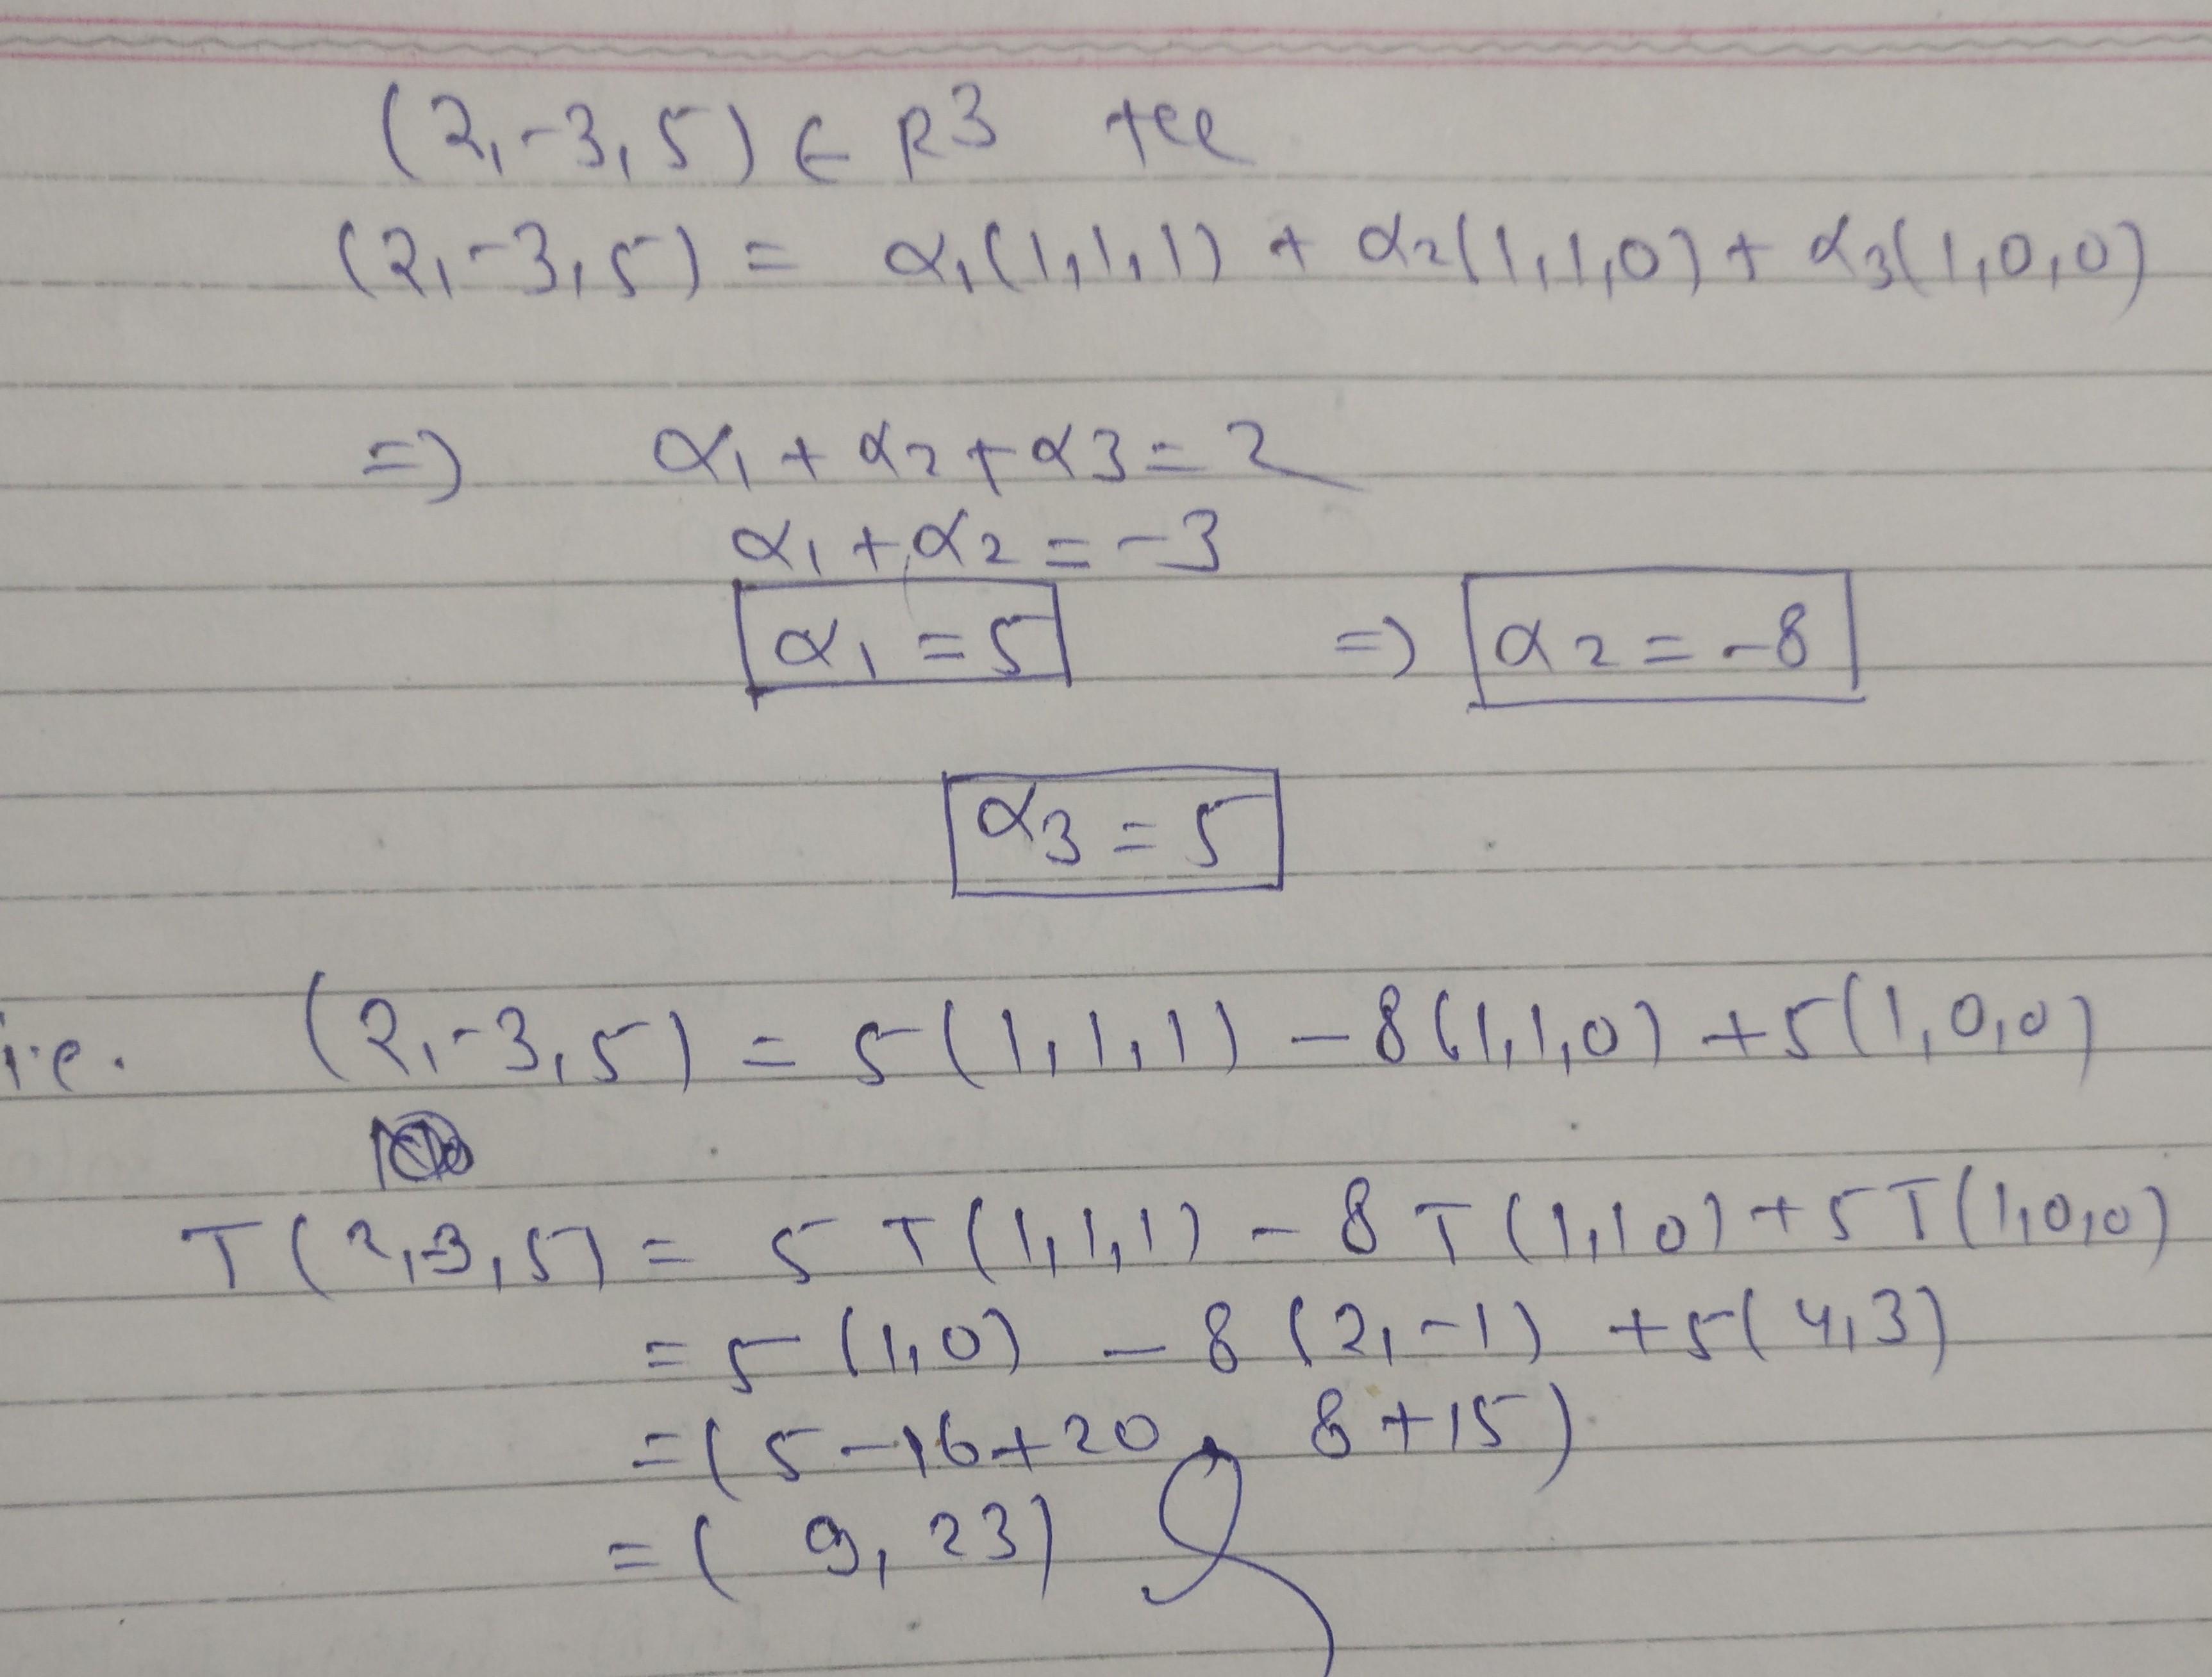 (2,-3,5) ∈ R3
(2,-3,5) = α1(1,1,1) + α2(1,1,0) + α3(1,0,0)
=) α1 + α2 + α3 = 2
α1 + α2 = -3
α1 = 5 =) α2 = -8
α3 = 5
i.e. (2,-3,5) = 5(1,1,1) - 8(1,1,0) + 5(1,0,0)
T(2,-3,5) = 5 T(1,1,1) - 8 T(1,1 0) + 5 T(1,0,0)
= 5 (1,0) - 8 (2,-1) + 5(4,3)
= (5 - 16 + 20 , 8 + 15)
= ( 9, 23)